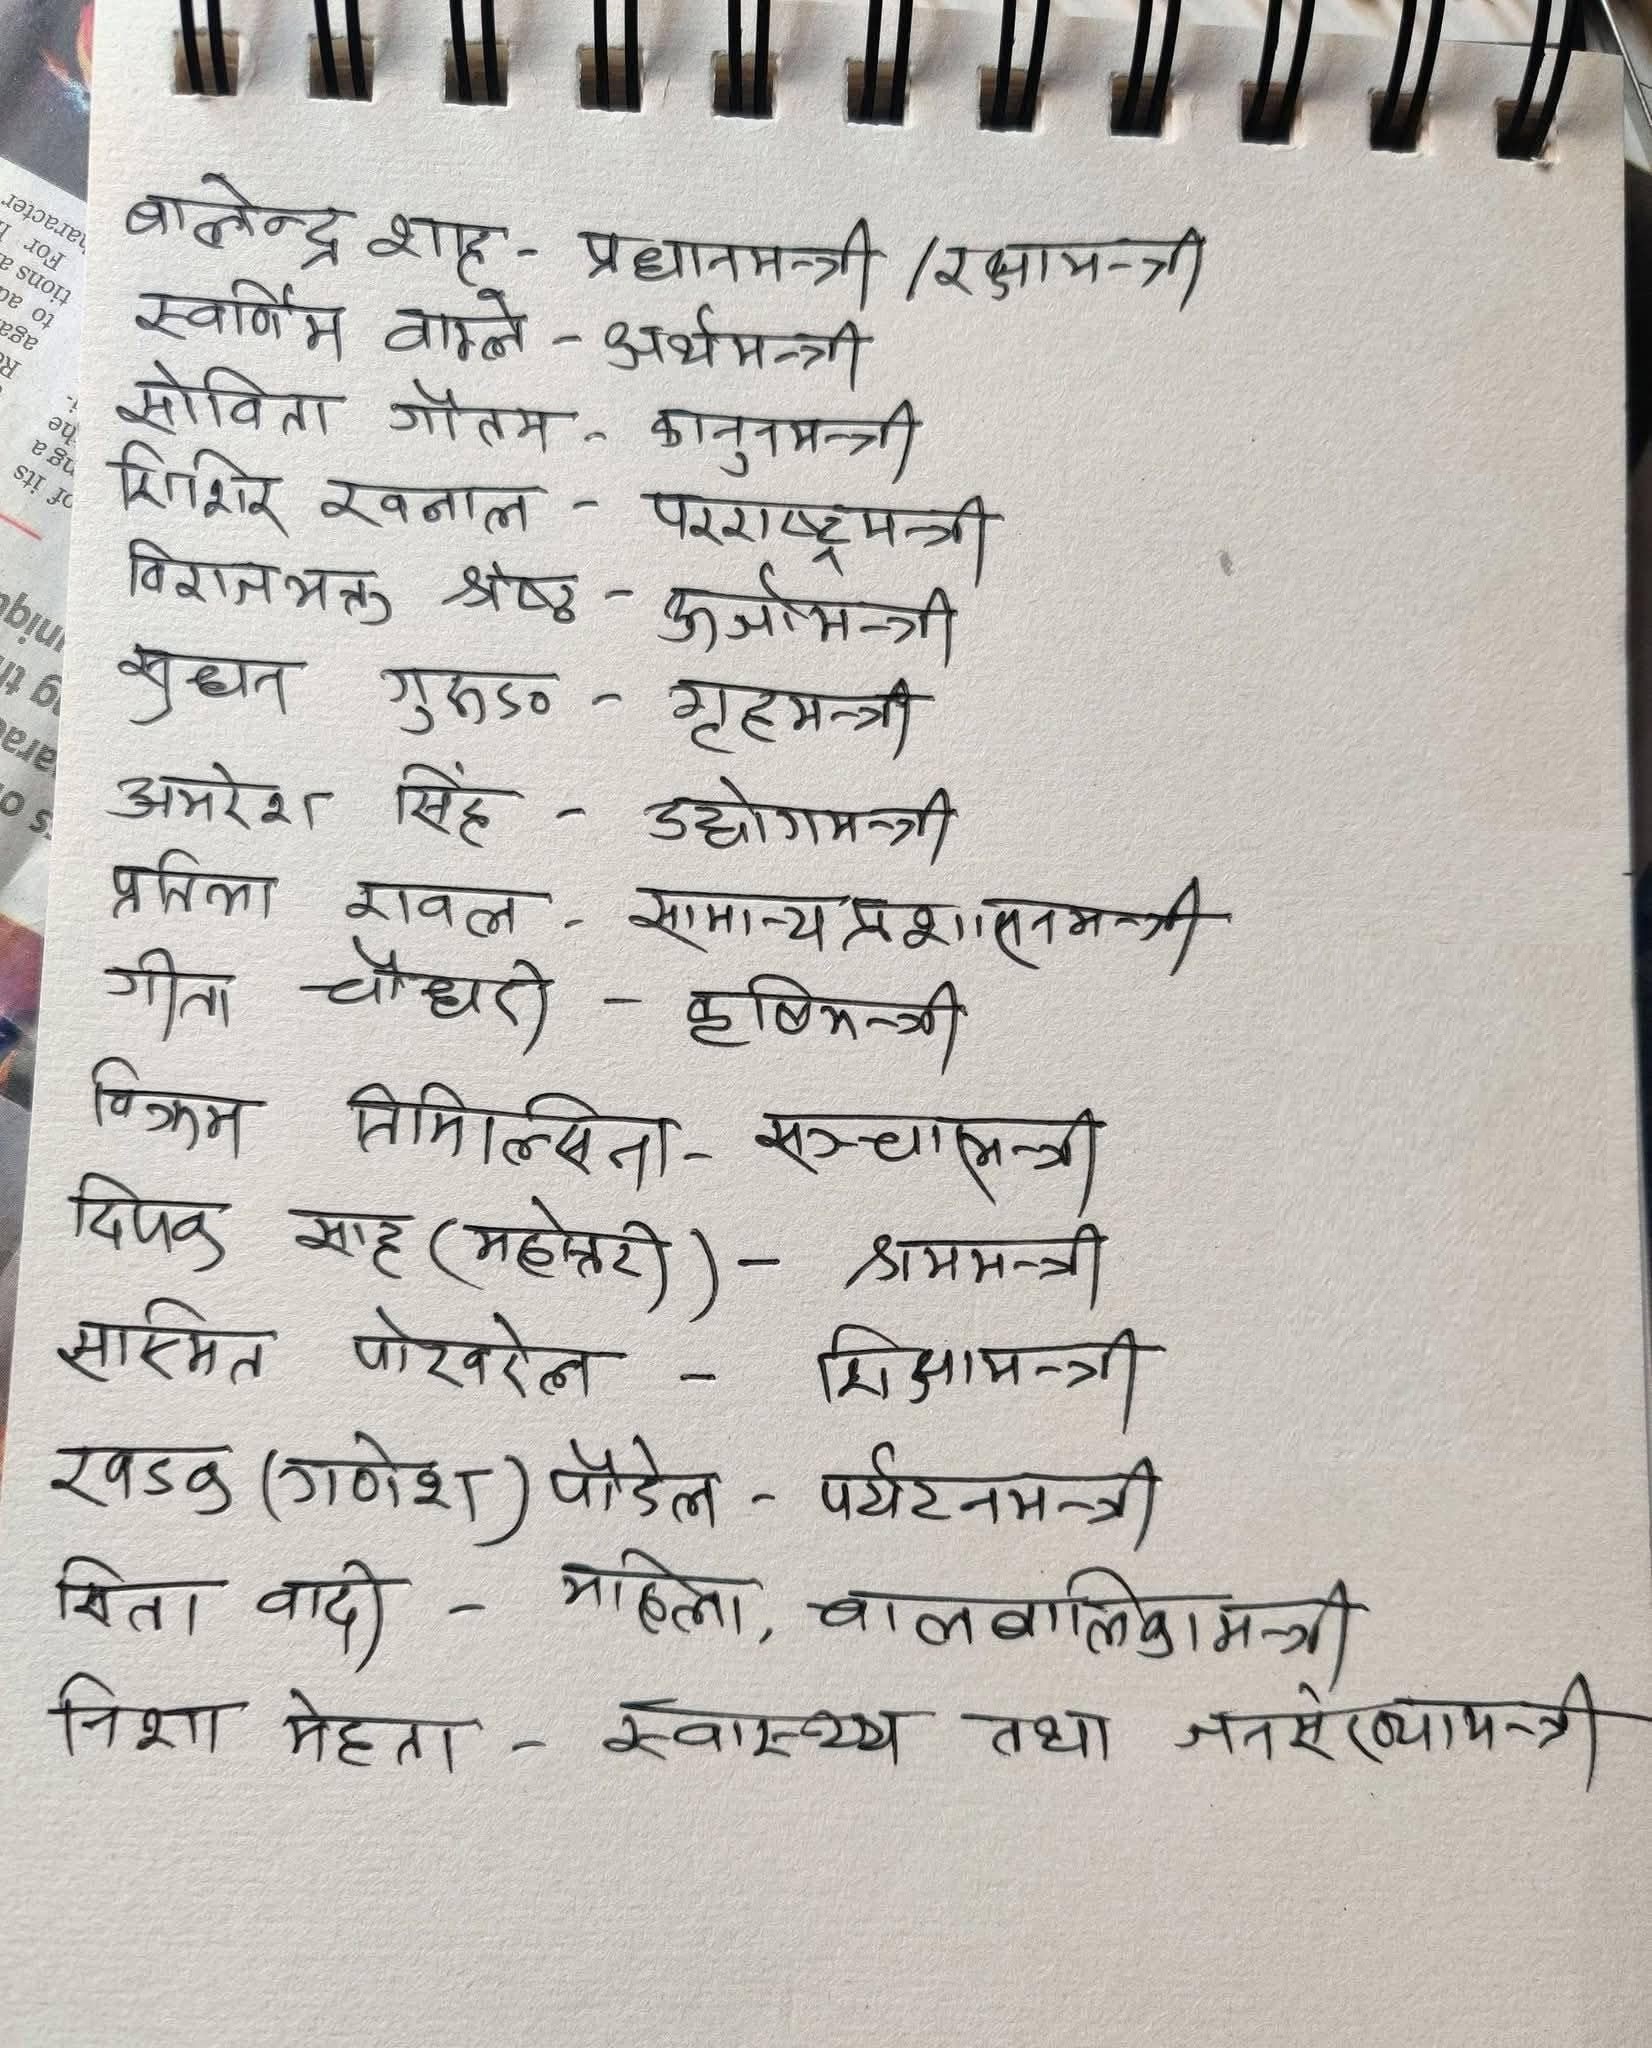 बालेन्द्र शाह - प्रधानमन्त्री / रक्षामन्त्री
स्वर्णिम वाग्ले - अर्थमन्त्री
सोविता गौतम - कानुनमन्त्री
शिशिर खनाल - परराष्ट्रमन्त्री
विराजभक्त श्रेष्ठ - ऊर्जामन्त्री
सुधन गुरुङ - गृहमन्त्री
अमरेश सिंह - उद्योगमन्त्री
प्रतिभा रावल - सामान्य प्रशासनमन्त्री
गीता चौधरी - कृषिमन्त्री
विक्रम तिमिल्सिना - सञ्चारमन्त्री
दिपक साह (महोत्तरी) - श्रममन्त्री
सास्मित पोखरेल - शिक्षामन्त्री
खडक (गणेश) पौडेल - पर्यटनमन्त्री
सिता वादी - महिला, बालबालिकामन्त्री
निशा मेहता - स्वास्थ्य तथा जनसंख्यामन्त्री